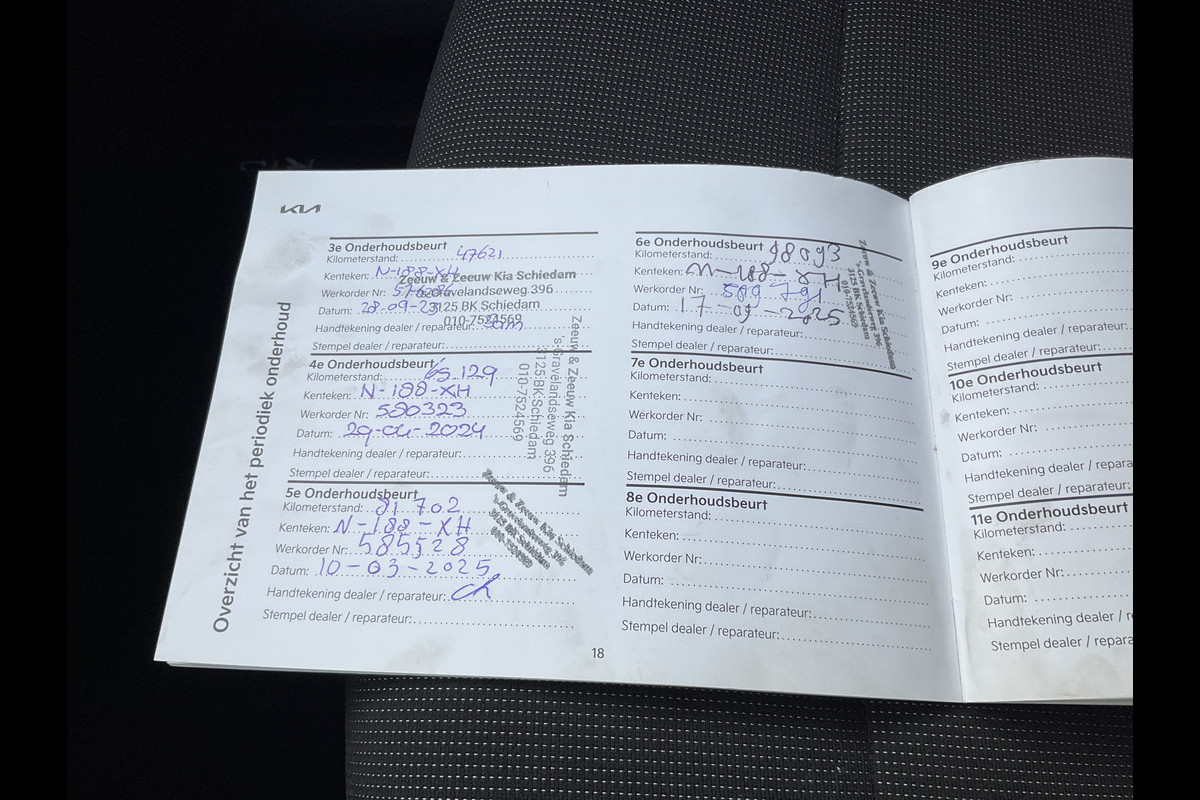 KIA
Overzicht van het periodiek onderhoud
3e Onderhoudsbeurt
Kilometerstand: 47621
Kenteken: N-188-XH
Werkorder Nr:
Datum: 28-09-23
Handtekening dealer / reparateur:
Stempel dealer / reparateur:
Zeeuw & Zeeuw Kia Schiedam
's-Gravelandseweg 396
3125 BK Schiedam
010-7524569
4e Onderhoudsbeurt
Kilometerstand: 65.129
Kenteken: N-188-XH
Werkorder Nr: 580323
Datum: 29-04-2024
Handtekening dealer / reparateur:
Stempel dealer / reparateur:
Zeeuw & Zeeuw Kia Schiedam
's-Gravelandseweg 396
3125 BK Schiedam
010-7524569
5e Onderhoudsbeurt
Kilometerstand: 81702
Kenteken: N-188-XH
Werkorder Nr: 585528
Datum: 10-03-2025
Handtekening dealer / reparateur:
Stempel dealer / reparateur:
Zeeuw & Zeeuw Kia Schiedam
's-Gravelandseweg 396
3125 BK Schiedam
010-7524569
18
6e Onderhoudsbeurt
Kilometerstand: 98093
Kenteken: N-188-XH
Werkorder Nr: 589791
Datum: 17-09-2025
Handtekening dealer / reparateur:
Stempel dealer / reparateur:
Zeeuw & Zeeuw Kia Schiedam
's-Gravelandseweg 396
3125 BK Schiedam
010-7524569
7e Onderhoudsbeurt
Kilometerstand:
Kenteken:
Werkorder Nr:
Datum:
Handtekening dealer / reparateur:
Stempel dealer / reparateur:
8e Onderhoudsbeurt
Kilometerstand:
Kenteken:
Werkorder Nr:
Datum:
Handtekening dealer / reparateur:
Stempel dealer / reparateur:
9e Onderhoudsbeurt
Kilometerstand:
Kenteken:
Werkorder Nr:
Datum:
Handtekening dealer / reparateur:
Stempel dealer / reparateur:
10e Onderhoudsbeurt
Kilometerstand:
Kenteken:
Werkorder Nr:
Datum:
Handtekening dealer / repara
Stempel dealer / reparateur:
11e Onderhoudsbeurt
Kilometerstand:
Kenteken:
Werkorder Nr:
Datum:
Handtekening dealer / r
Stempel dealer / repara